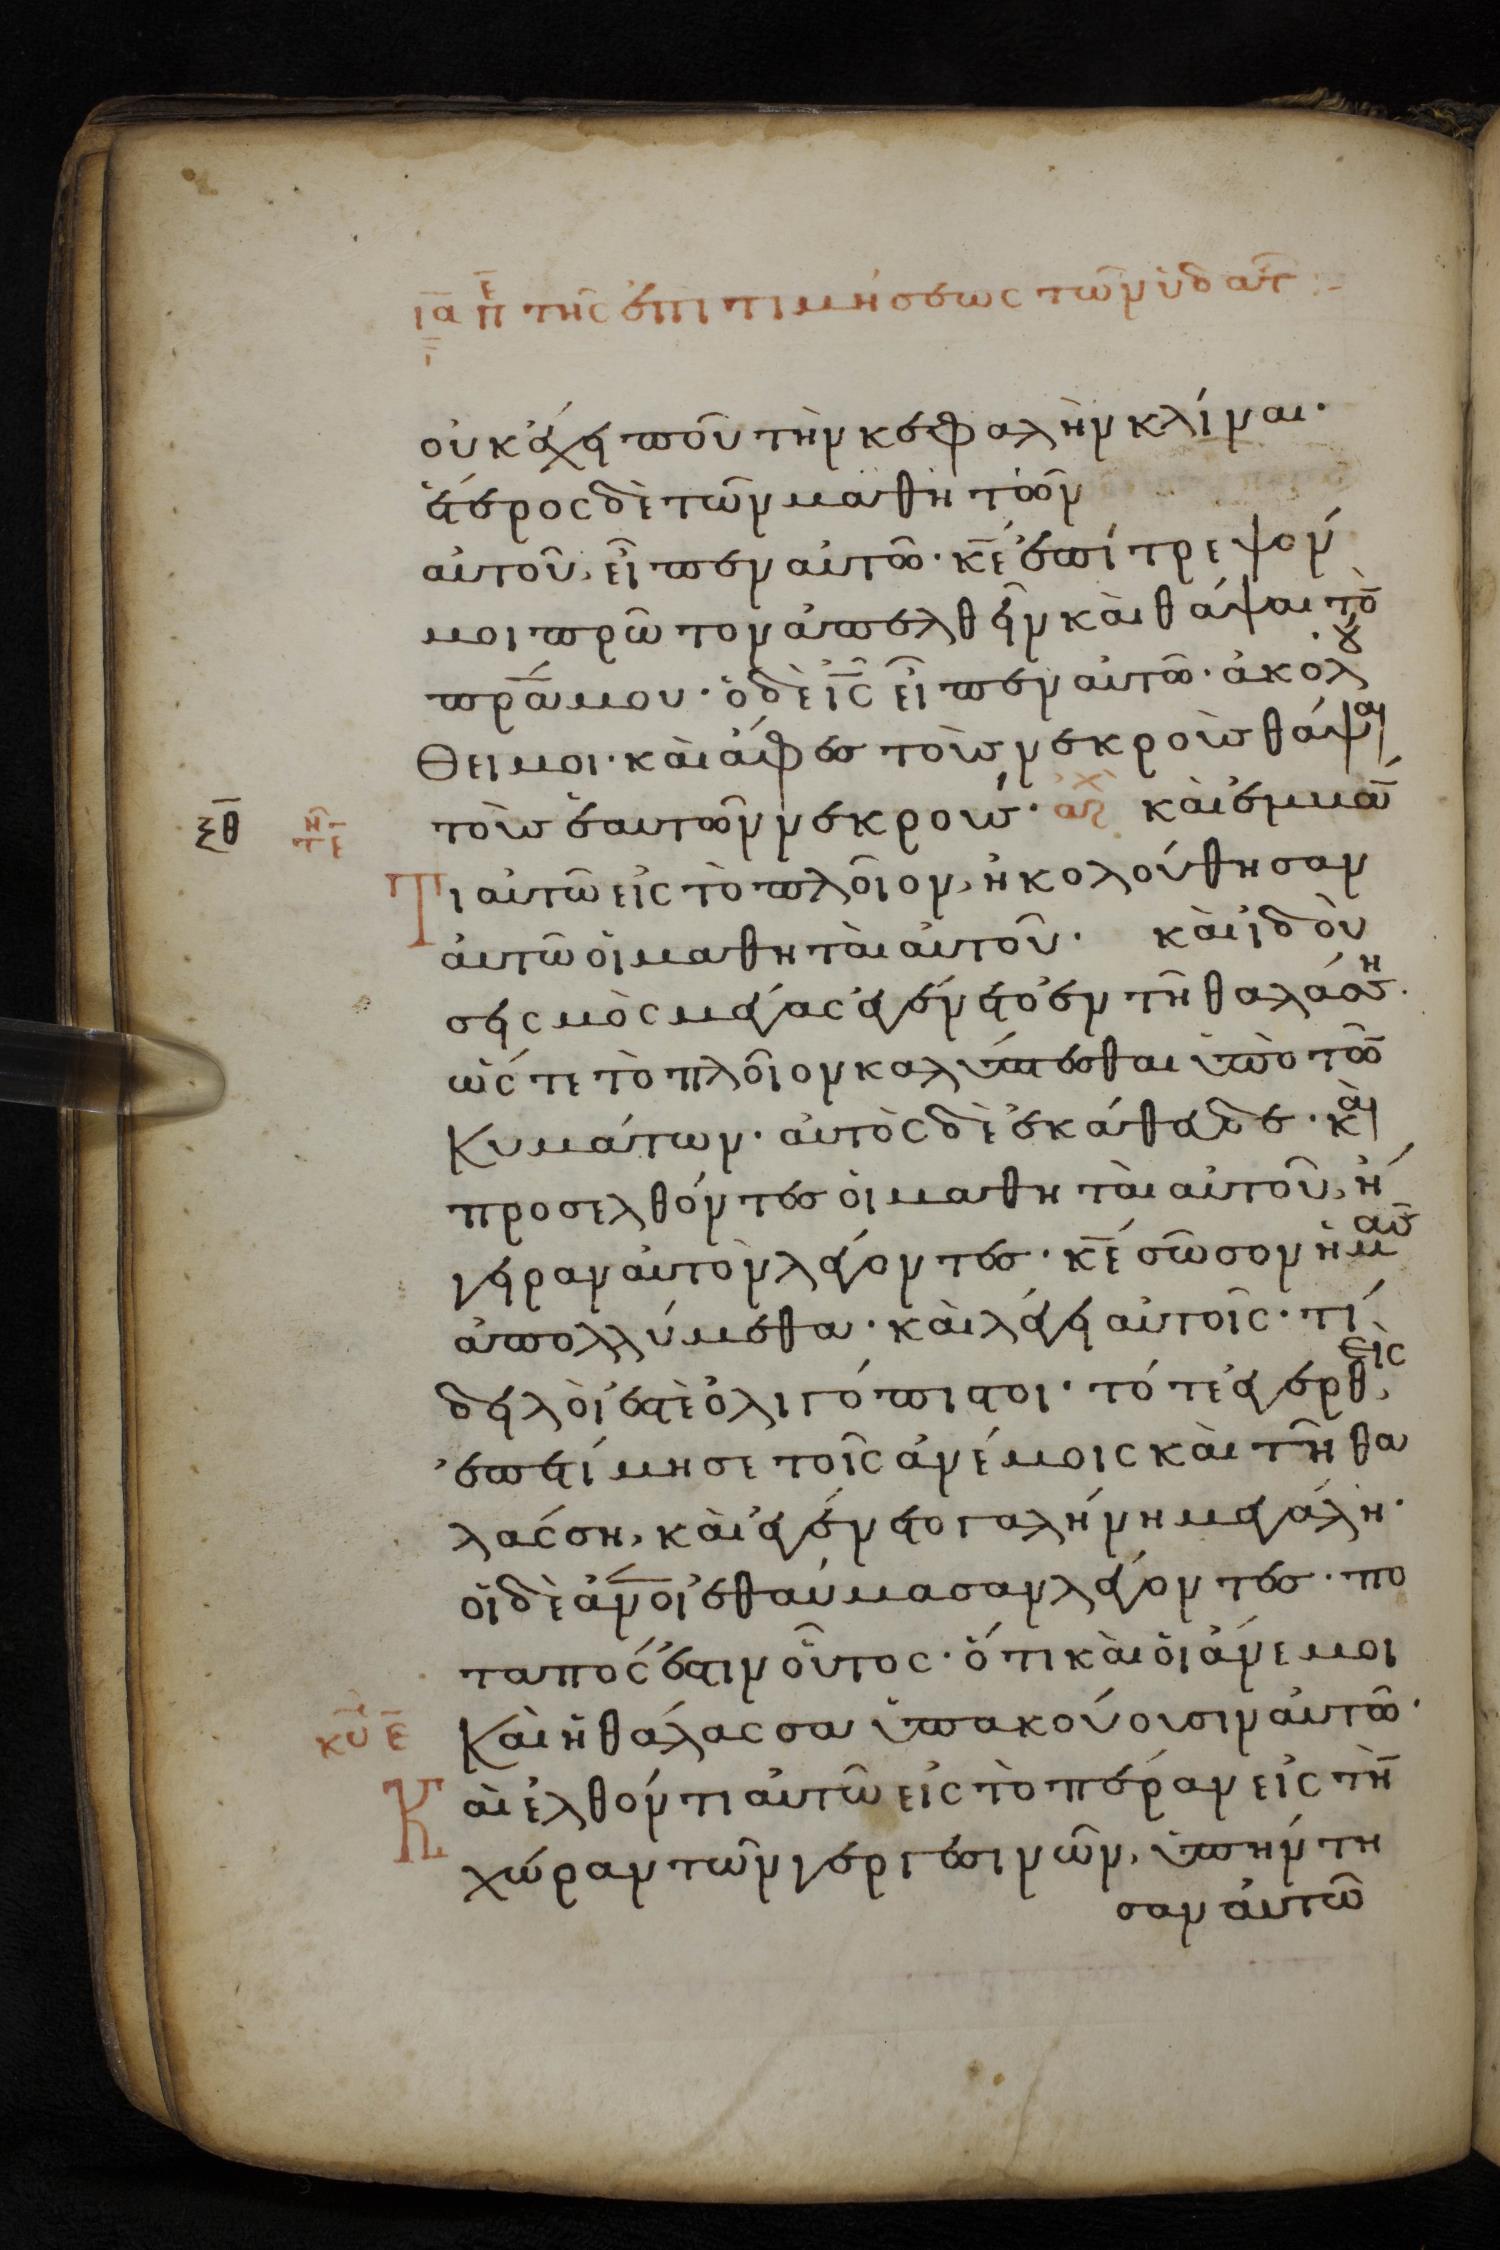 ια πε της επιτιμησεως των υδατ
ι
οὐκ ἔχει ποῦ τὴν κεφαλὴν κλίναι·
ἕτερος δὲ τῶν μαθητῶν
αὐτοῦ, εἶπεν αὐτῶ· κε ἐπίτρεψόν
μοι πρῶτον ἀπελθεῖν καὶ θάψαι τὸ
πρᾱ μου· ὁ δὲ ις εἶπεν αὐτῶ· ἀκολού
θει μοι· καὶ ἄφες τοὺς νεκροὺς θάψαι
τοὺς ἑαυτῶν νεκρούς· ἀρχ καὶ ἐμβαν
ξθ τη ε
Τι αὐτῶ εἰς τὸ πλοῖον, ἠκολούθησαν
αὐτῶ οἱ μαθηταὶ αὐτοῦ· καὶ ἰδοὺ
σεισμὸς μέγας ἐγένετο ἐν τῆ θαλάσση·
ὥστε τὸ πλοῖον καλύπτεσθαι ὑπὸ τῶ
Κυμάτων· αὐτὸς δὲ ἐκάθευδε· καὶ
προσελθόντες οἱ μαθηταὶ αὐτοῦ, ἤ
γειραν αὐτὸν λέγοντες· κε σῶσον ἡμᾶς
ἀπολλύμεθα· καὶ λέγει αὐτοῖς· τί
δειλοί ἐστὲ ὀλιγόπιστοι· τότε ἐγερθεὶς,
ἐπετίμησε τοῖς ἀνέμοις καὶ τῆ θα
λάσση, καὶ ἐγένετο γαλήνη μεγάλη·
οἱ δὲ ἀνοι ἐθαύμασαν λέγοντες· πο
ταπός ἐστιν οὗτος· ὅτι καὶ οἱ ἄνεμοι
Καὶ ἡ θάλασσα ὑπακούουσιν αὐτῶ·
κυ ε
Καὶ ἐλθόντι αὐτῶ εἰς τὸ πέραν εἰς τὴ
χώραν τῶν γεργεσινῶν, ὑπήντη
σαν αὐτῶ